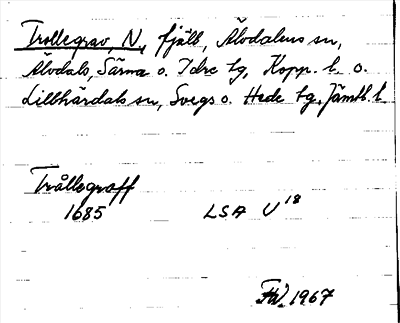 Trollegrav, N., fjäll, Älvdalens sn,
Älvdals, Särna o. Idre tg, Kopp. l. o.
Lillhärdals sn, Svegs o. Hede tg, Jämtl. l.
Trållegraff
1685 LSA U 18
FW. 1967